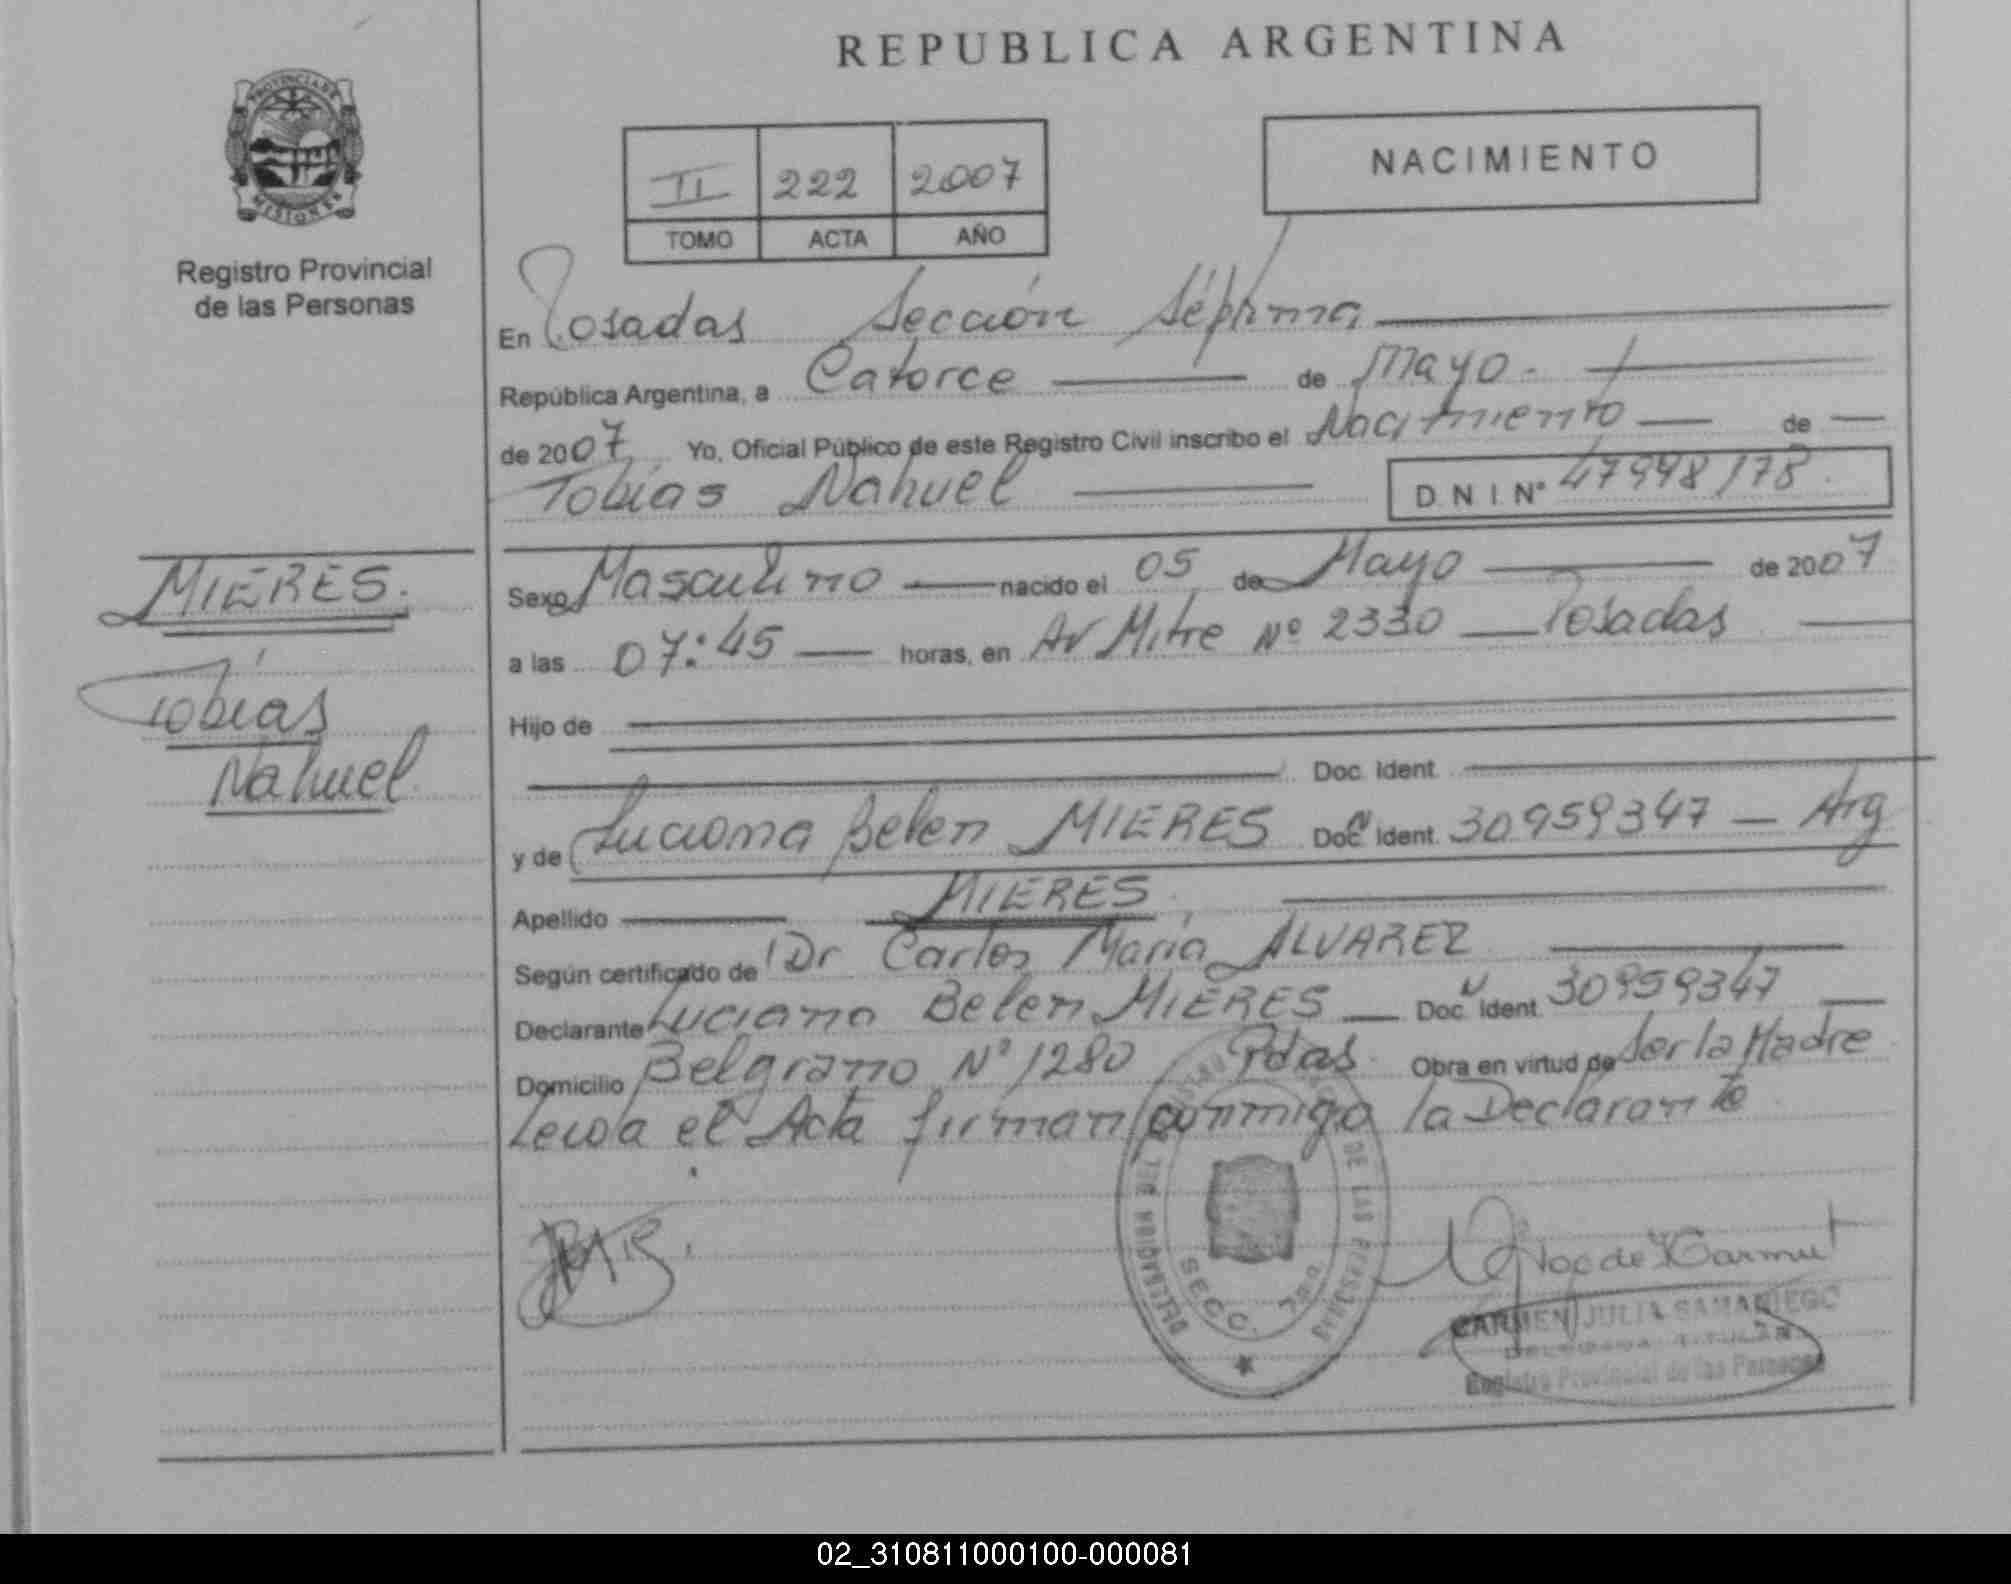 REPUBLICA ARGENTINA
PROVINCIA DE MISIONES
Registro Provincial
de las Personas
II 222 2007
TOMO ACTA AÑO
NACIMIENTO
En Posadas Sección Séptima
República Argentina, a Catorce de Mayo.
de 2007 Yo, Oficial Público de este Registro Civil inscribo el Nacimiento de
Tobias Nahuel D N I Nº 47998178
MIERES.
Tobias
Nahuel
Sexo Masculino nacido el 05 de Mayo de 2007
a las 07:45 horas, en Av Mitre Nº 2330 Posadas
Hijo de
Doc. Ident.
y de Luciana Belen MIERES Doc. Ident. 30959347 - Arg
Apellido MIERES
Según certificado de Dr Carlos María ALVAREZ
Declarante Luciana Belen MIERES Doc. Ident. 30959347
Domicilio Belgrano Nº 1280 Pdas. Obra en virtud de Ser la Madre
Leida el Acta firman conmigo la Declarante
DE LAS PERSONAS
SECC. 7ma.
CARMEN JULIA SAMANIEGO
DELEGADA TITULAR
Registro Provincial de las Personas
02_310811000100-000081